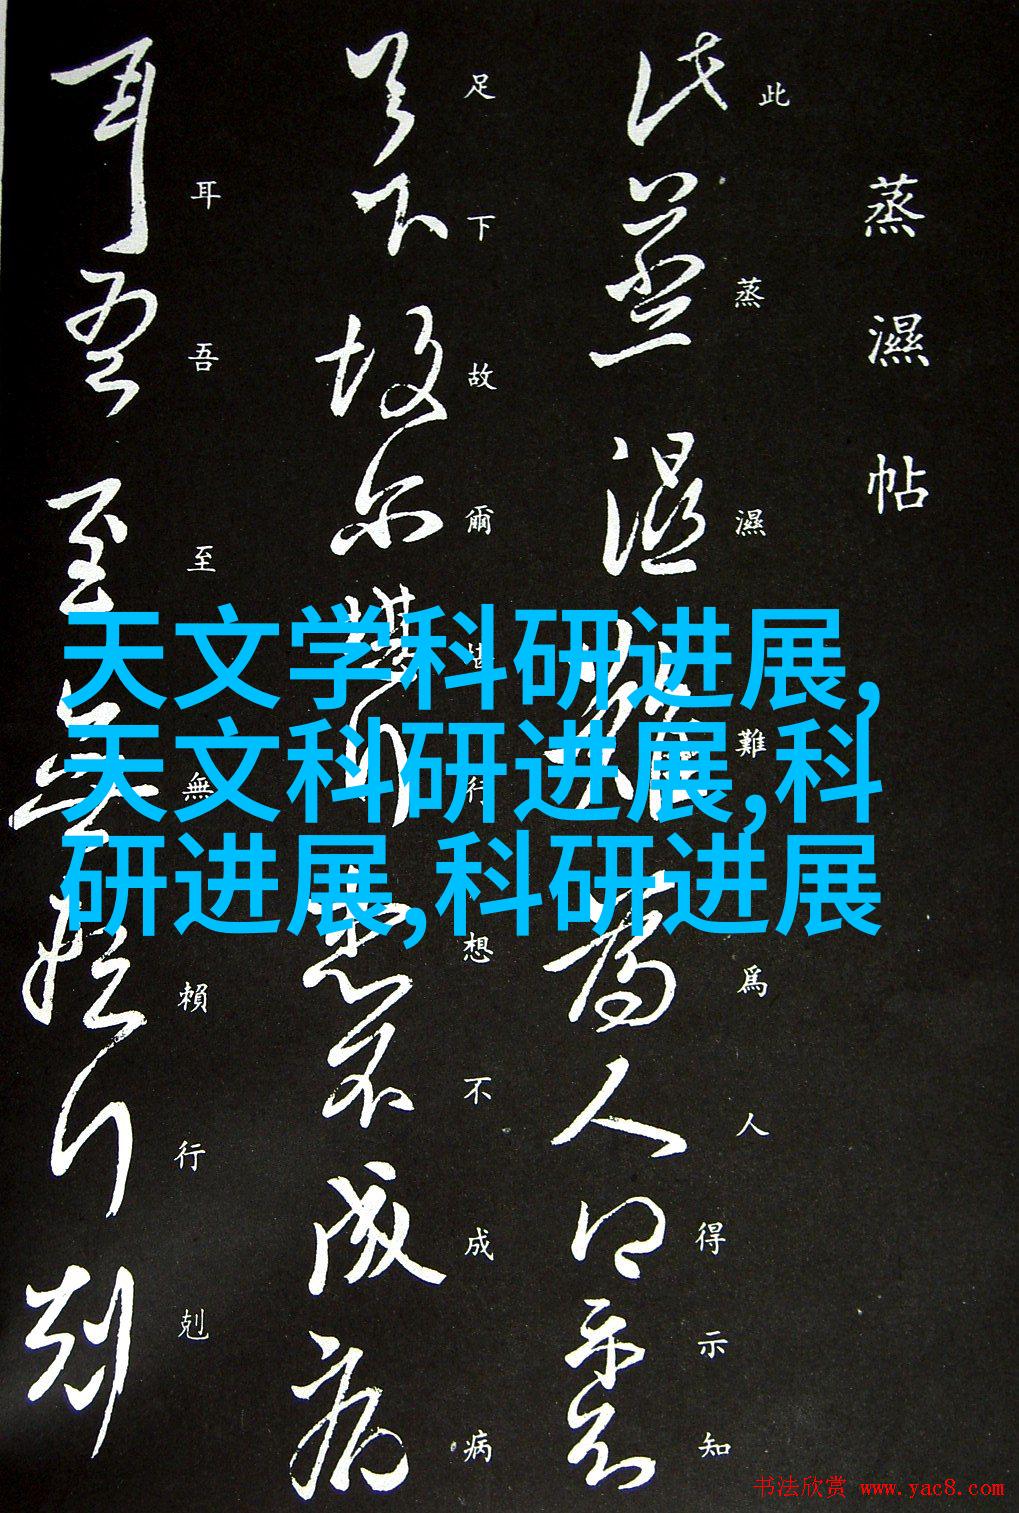 蒸濕帖
此蒸濕難爲人得示知
足下故爾堪行想不成病
耳吾至無賴行剋
天文学科研进展,
天文科研进展,科
研进展,科研进展
书法欣赏 www.yac8.com